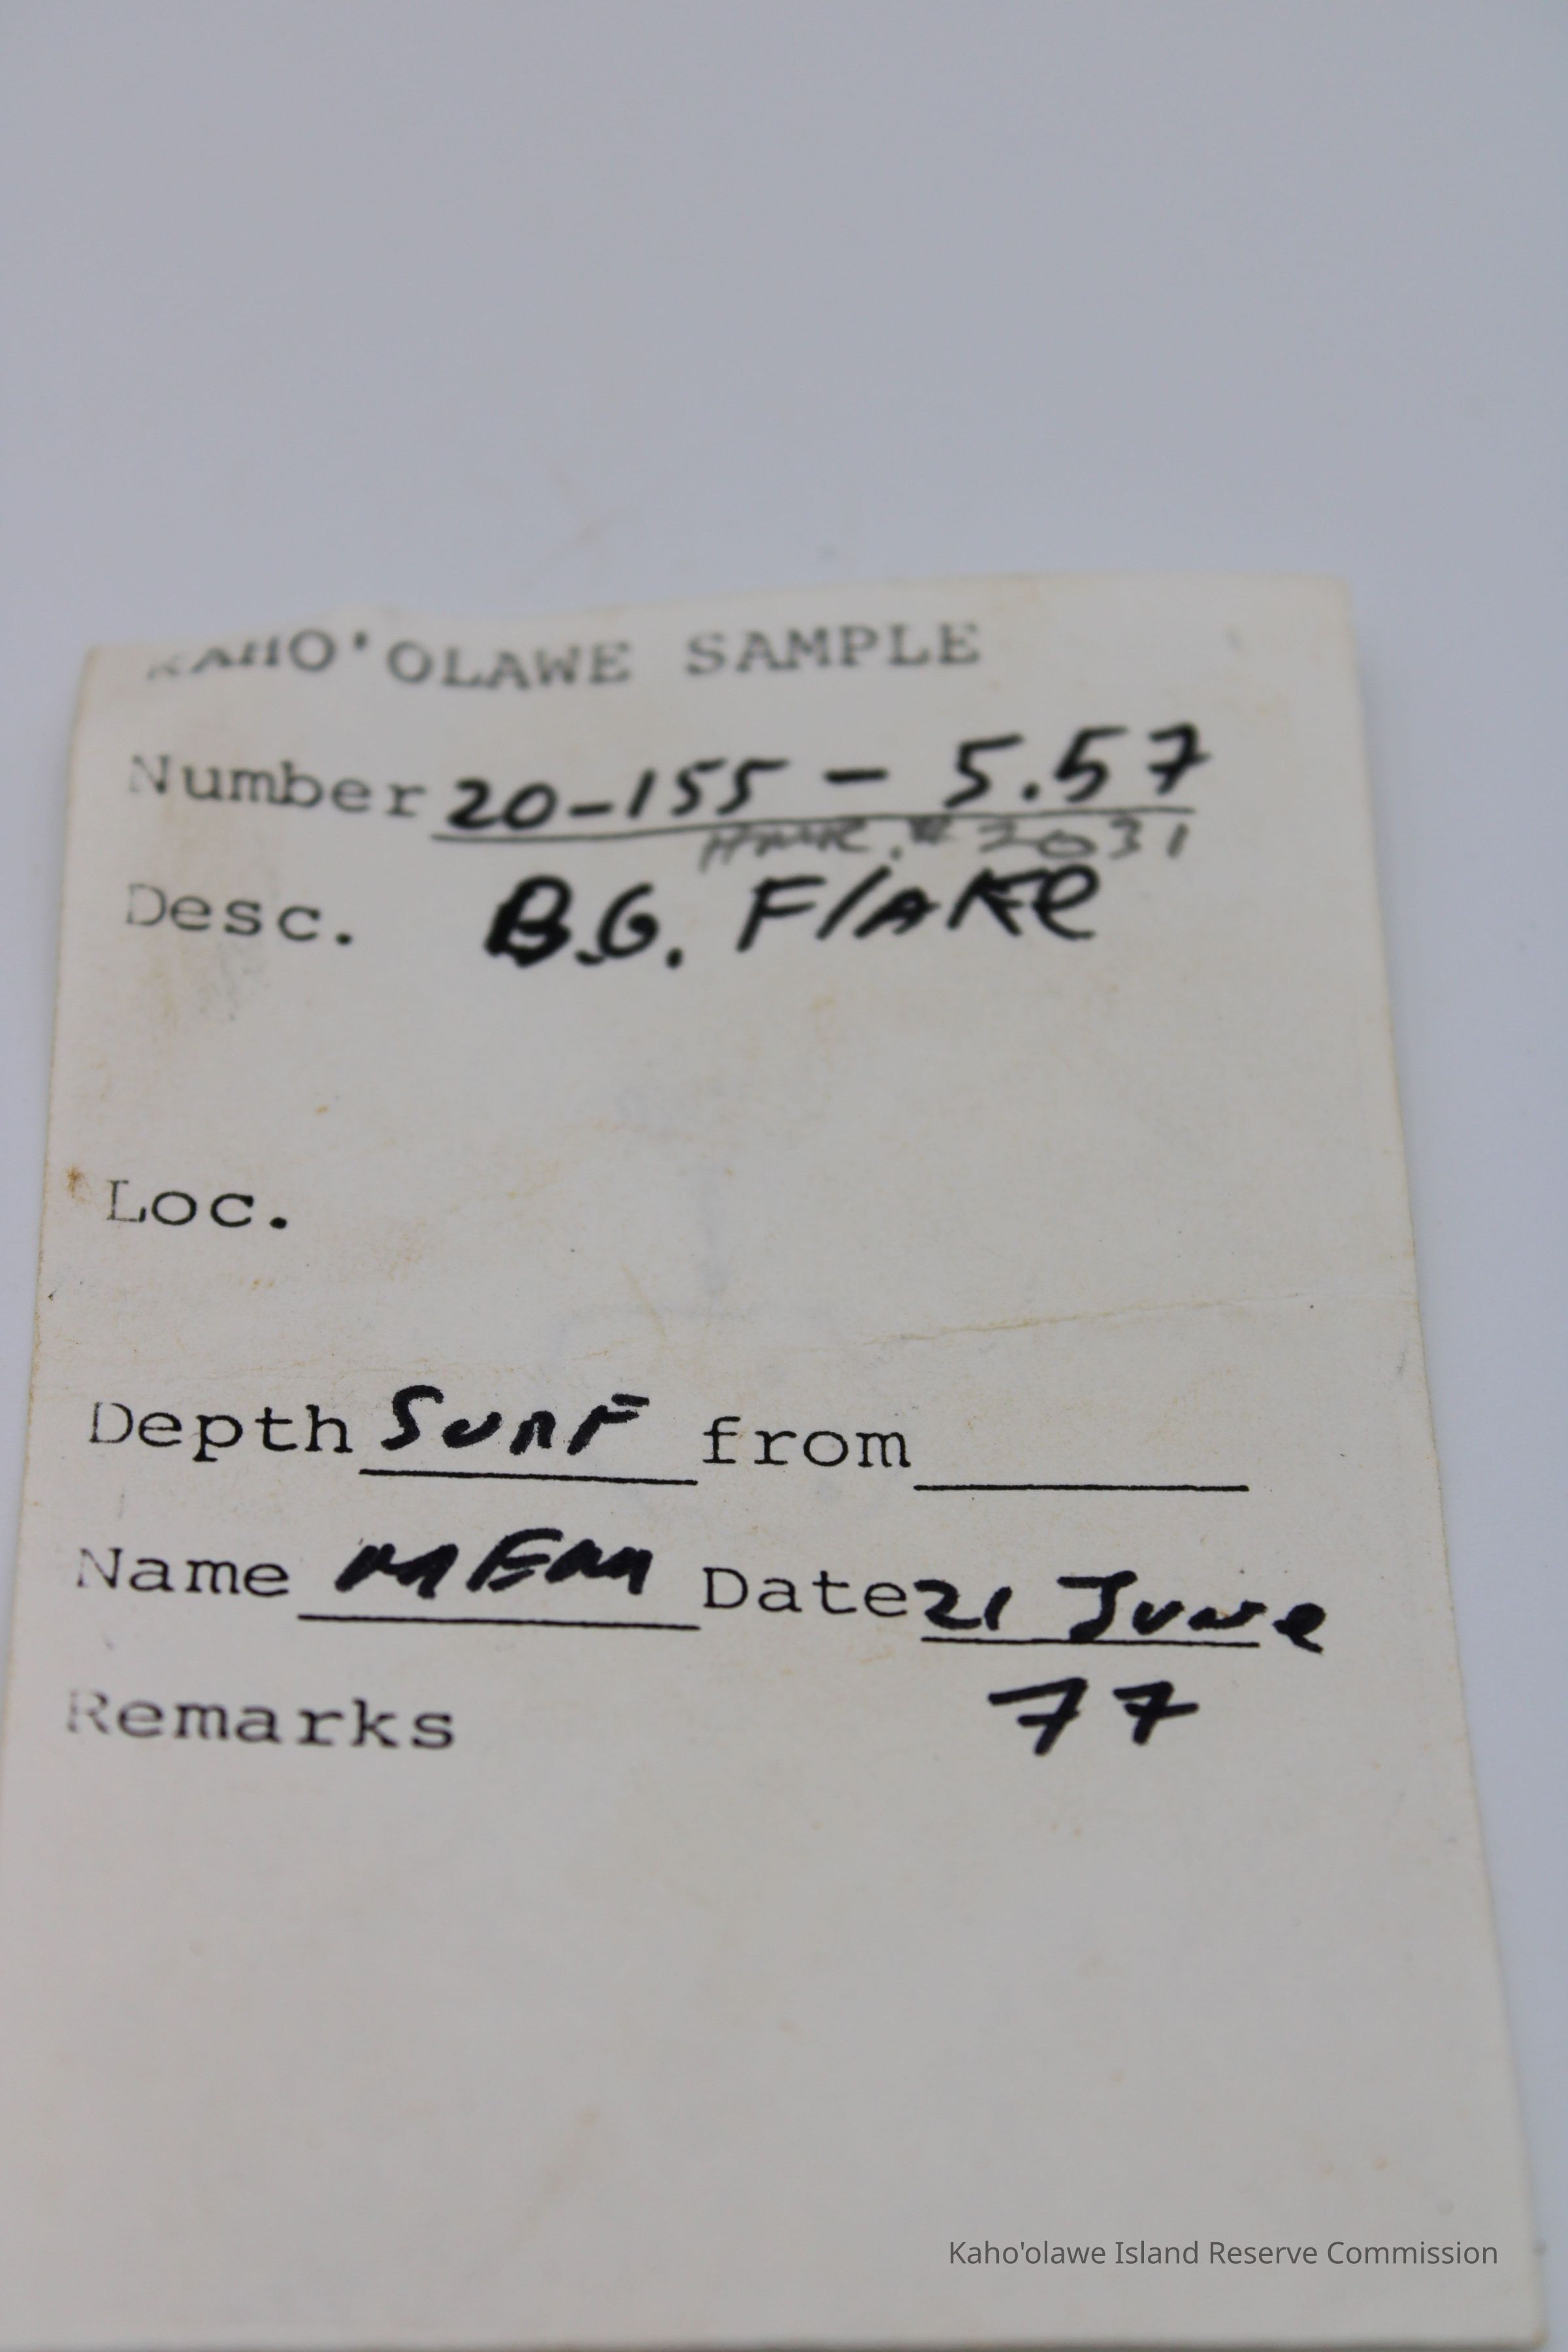 KAHO'OLAWE SAMPLE
Number 20-155 - 5.57
# 2031
Desc. B.G. Flake
Loc.
Depth Surf from
Name MEM Date 21 June
77
Remarks
Kaho'olawe Island Reserve Commission